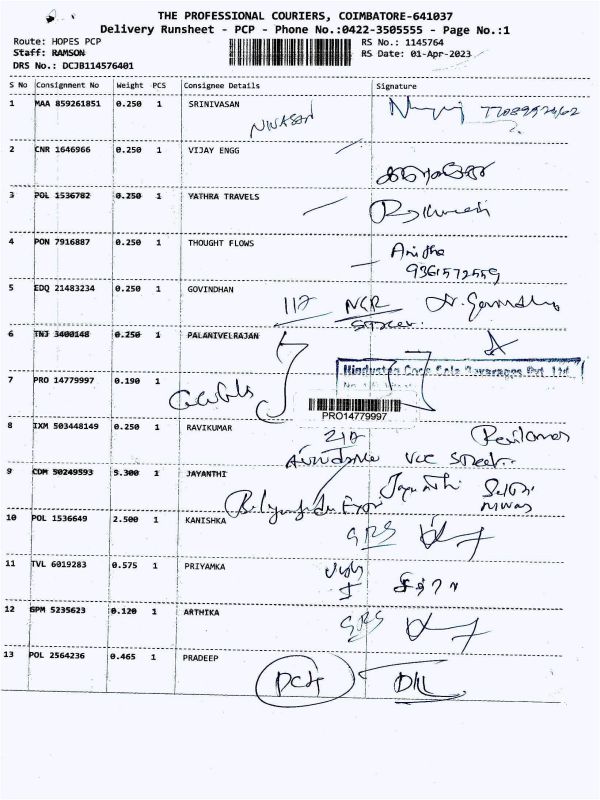 THE PROFESSIONAL COURIERS, COIMBATORE-641037
Delivery Runsheet - PCP - Phone No.:0422-3505555 - Page No.:1
Route: HOPES PCP RS No.: 1145764
Staff: RAMSON RS Date: 01-Apr-2023
DRS No.: DCJB114576401
S No Consignment No Weight PCS Consignee Details Signature
1 MAA 859261851 0.250 1 SRINIVASAN
NIWASAN
2 CNR 1646966 0.250 1 VIJAY ENGG
3 POL 1536782 0.250 1 YATHRA TRAVELS
4 PON 7916887 0.250 1 THOUGHT FLOWS
Anitha
9361572559
5 EDQ 21483234 0.250 1 GOVINDHAN
117 NGR
Street.
6 TNJ 3400148 0.250 1 PALANIVELRAJAN
Hindustan Coca Cola Beverages Pvt. Ltd.
7 PRO 14779997 0.190 1
PRO14779997
8 IXM 503448149 0.250 1 RAVIKUMAR
212
VCC Street..
9 CDM 50249593 5.300 1 JAYANTHI
Jayanthi
10 POL 1536649 2.500 1 KANISHKA
GRS
11 TVL 6019283 0.575 1 PRIYAMKA
12 GPM 5235623 0.120 1 ARTHIKA
GRS
13 POL 2564236 0.465 1 PRADEEP